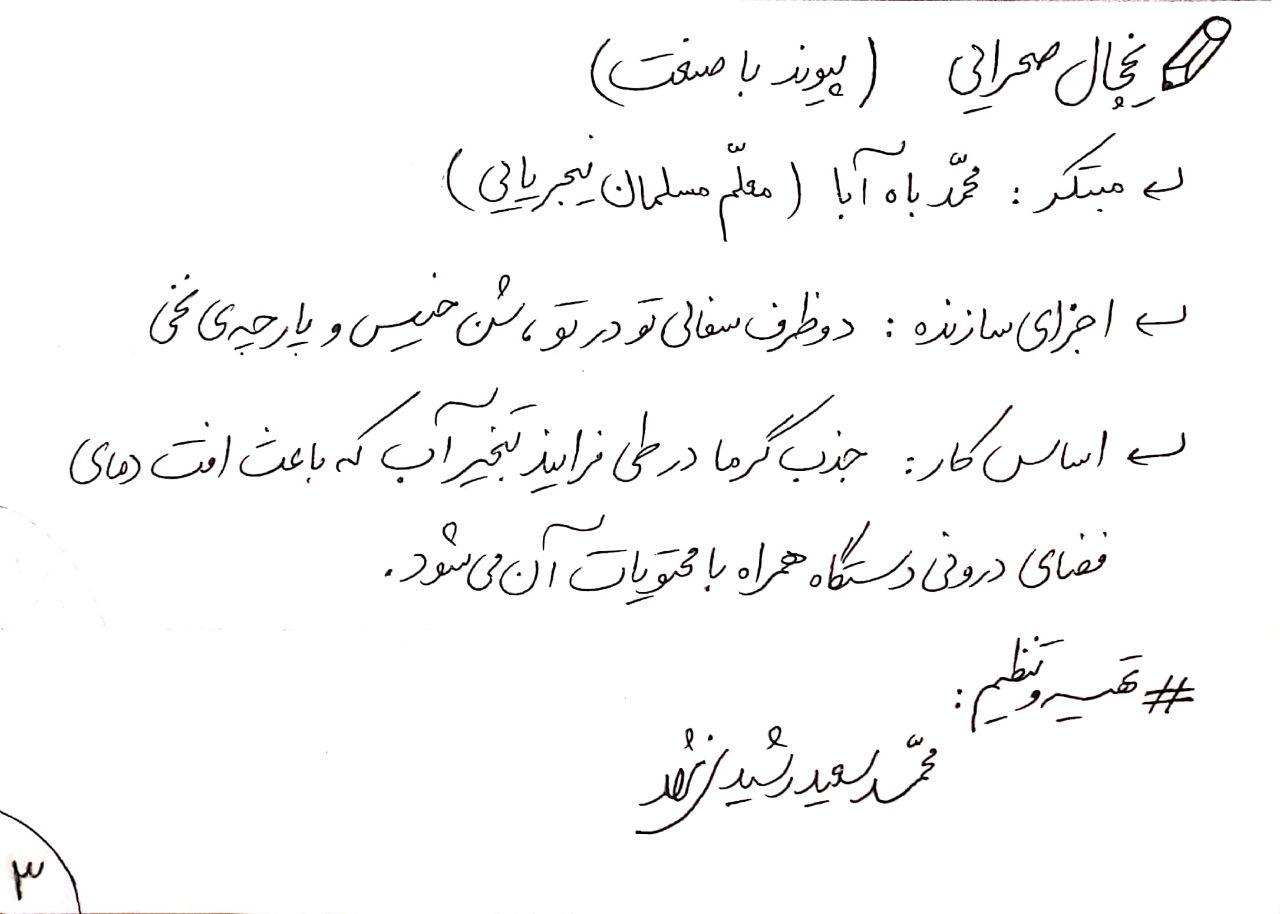 یخچال صحرایی (پیوند با صنعت)
← مبتکر : محمّد باه آبا (معلّم مسلمان نیجریایی)
← اجزای سازنده : دو ظرف سفالی تو در تو ، شن خیس و پارچه‌ی نخی
← اساس کار : جذب گرما در طی فرایند تبخیر آب که باعث افت دمای
فضای درونی دستگاه همراه با محتویات آن می‌شود .
# تهیه و تنظیم :
محمّد سعید رشیدی نژاد
۳